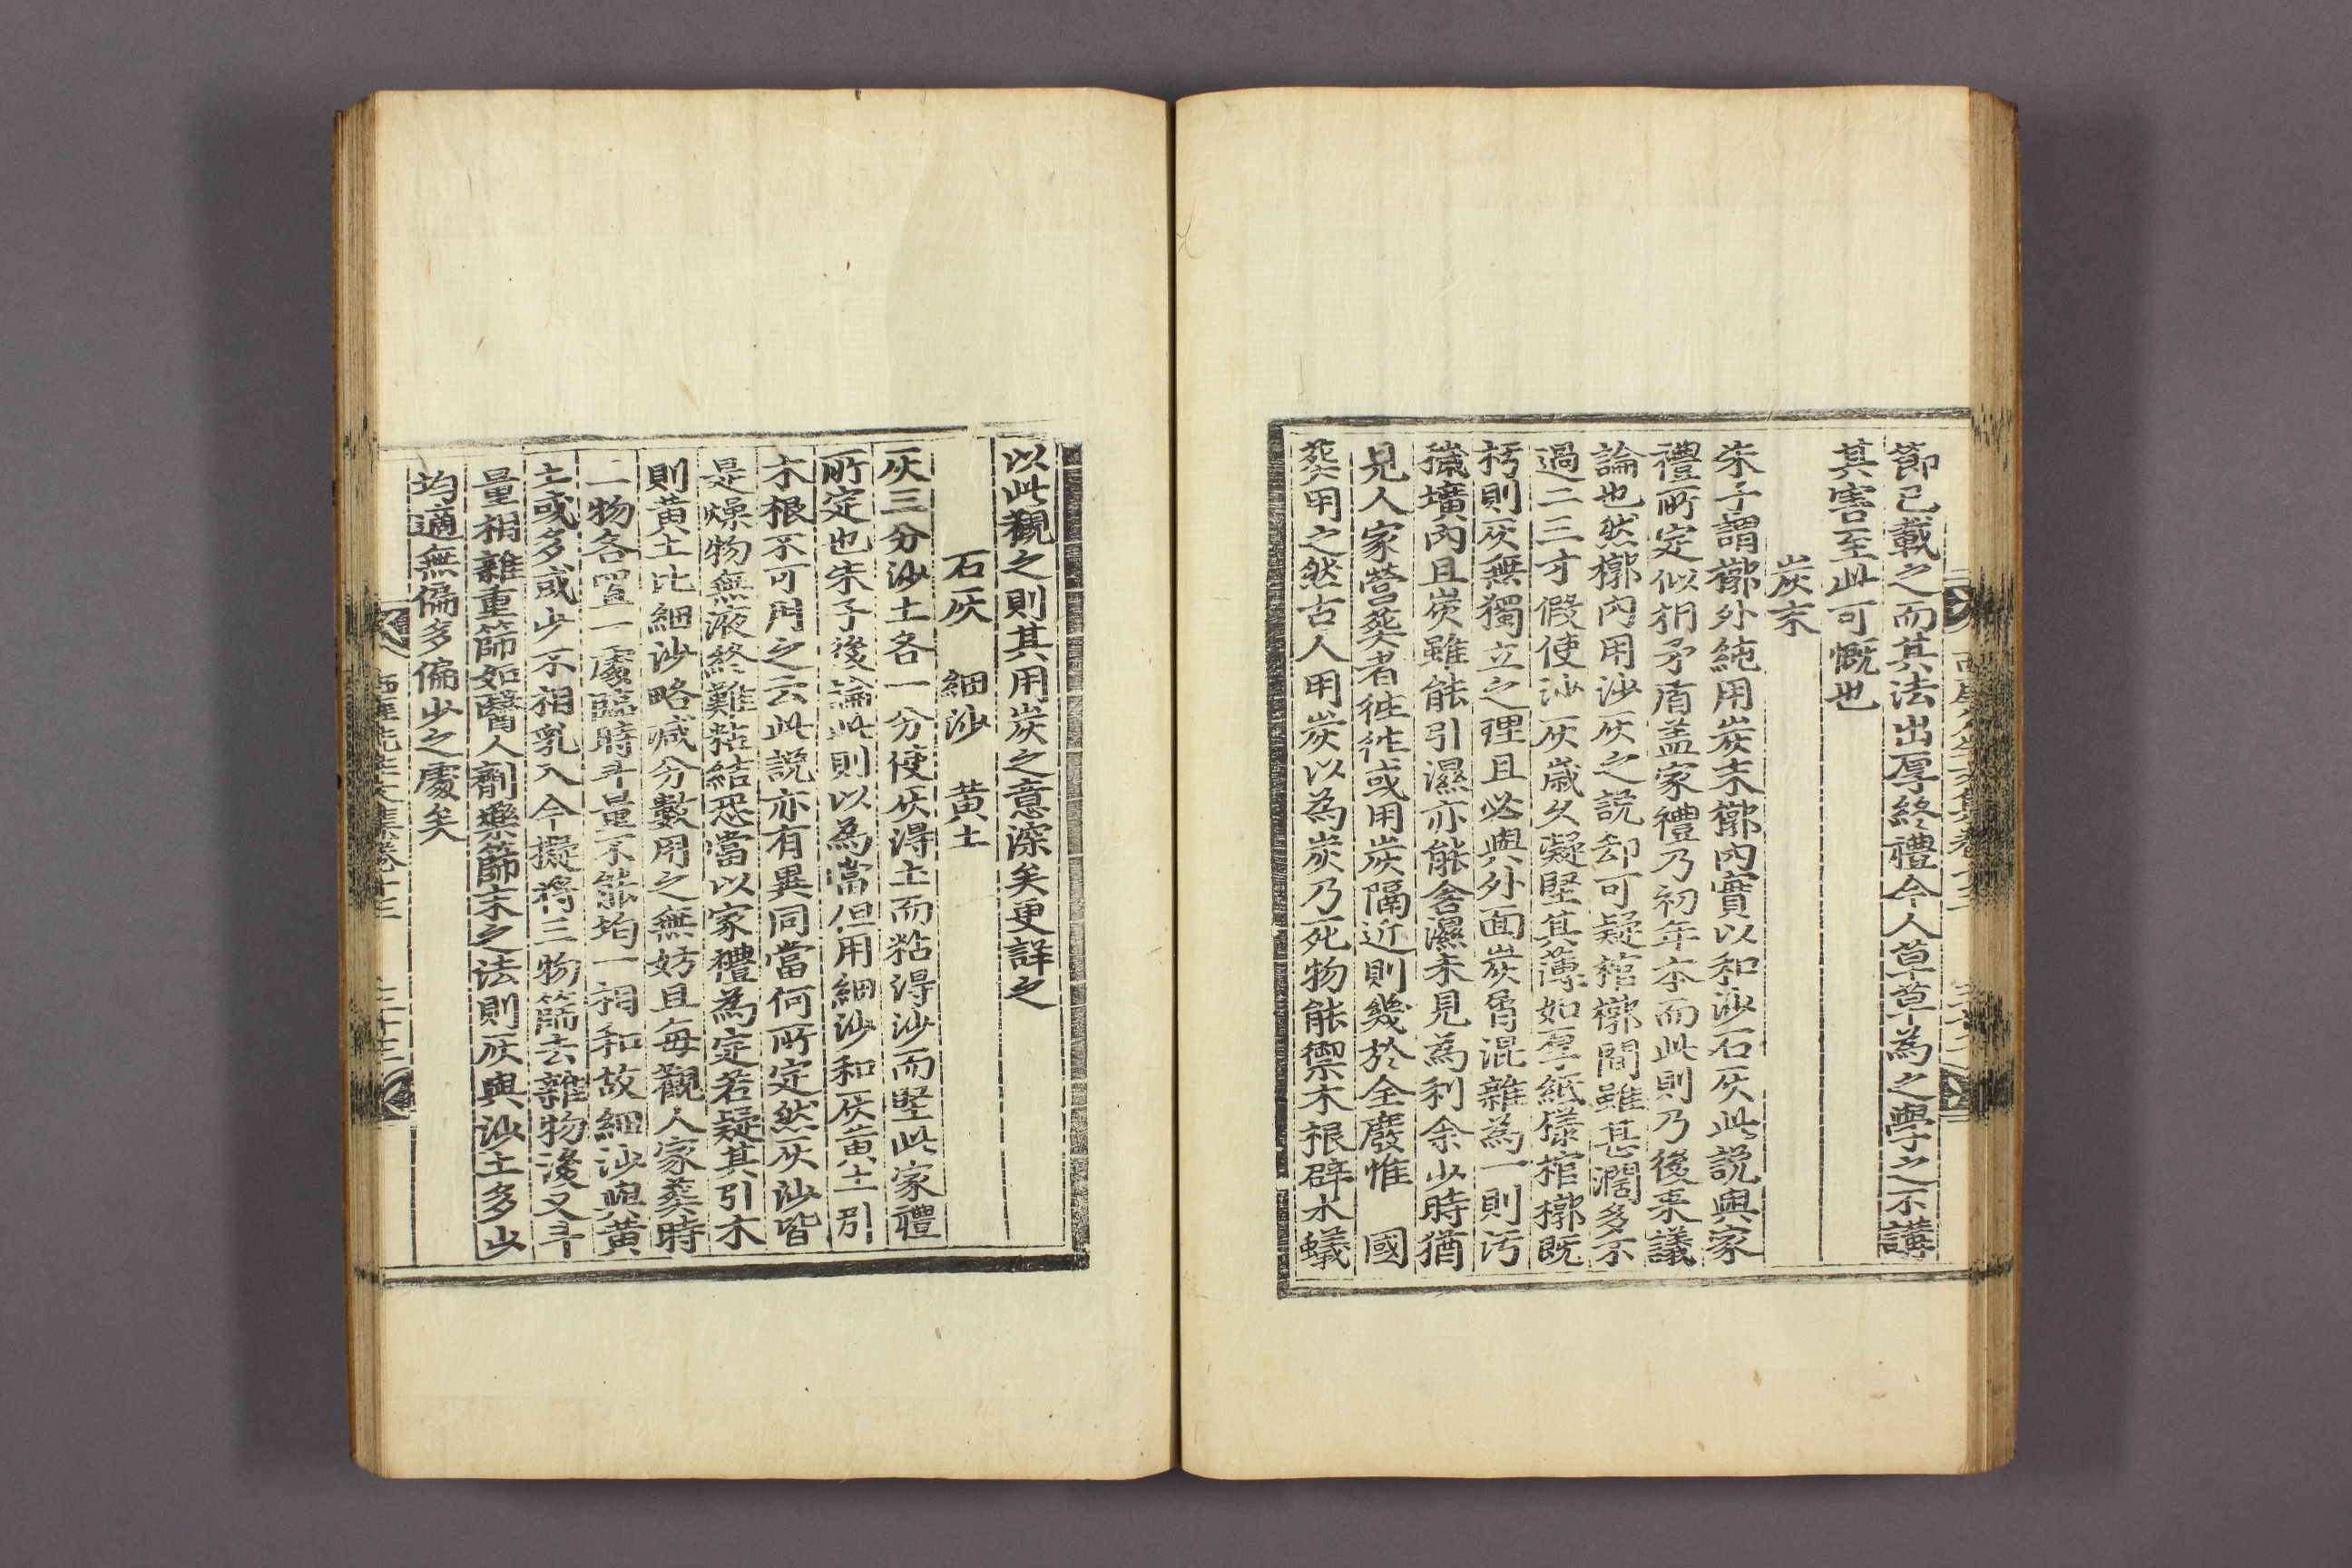 節已載之而其法出厚終禮今人草草為之學之不講
其害至此可慨也
炭末
朱子謂槨外純用炭末槨內實以和沙石灰此說與家
禮所定似相矛盾盖家禮乃初年本而此則乃後來議
論也然槨內用沙灰之說却可疑棺槨間雖甚濶多不
過二三寸假使沙灰歲久凝堅其薄如厚紙㨾棺槨既
朽則灰無獨立之理且必與外面炭屑混雜為一則汚
穢壙內且炭雖能引濕亦能含濕未見為利余少時猶
見人家營葬者徃徃或用炭隔近則幾於全廢惟 國
葬用之然古人用炭以為炭乃死物能禦木根辟水蟻
以此觀之則其用炭之意深矣更詳之
石灰 細沙 黃土
灰三分沙土各一分使灰得土而粘得沙而堅此家禮
所定也朱子後論此則以為當但用細沙和灰黃土引
木根不可用之云此說亦有異同當何所定然灰沙皆
是燥物無液終難粘結恐當以家禮為定若疑其引木
則黃土比細沙略减分數用之無妨且每觀人家葬時
二物各置一處臨時斗量不能均一相和故細沙與黃
土或多或少不相乳入今擬將三物篩去雜物後又斗
量相雜重篩如醫人劑藥篩末之法則灰與沙土多少
均適無偏多偏少之處矣
西厓先生文集卷十三 三十三